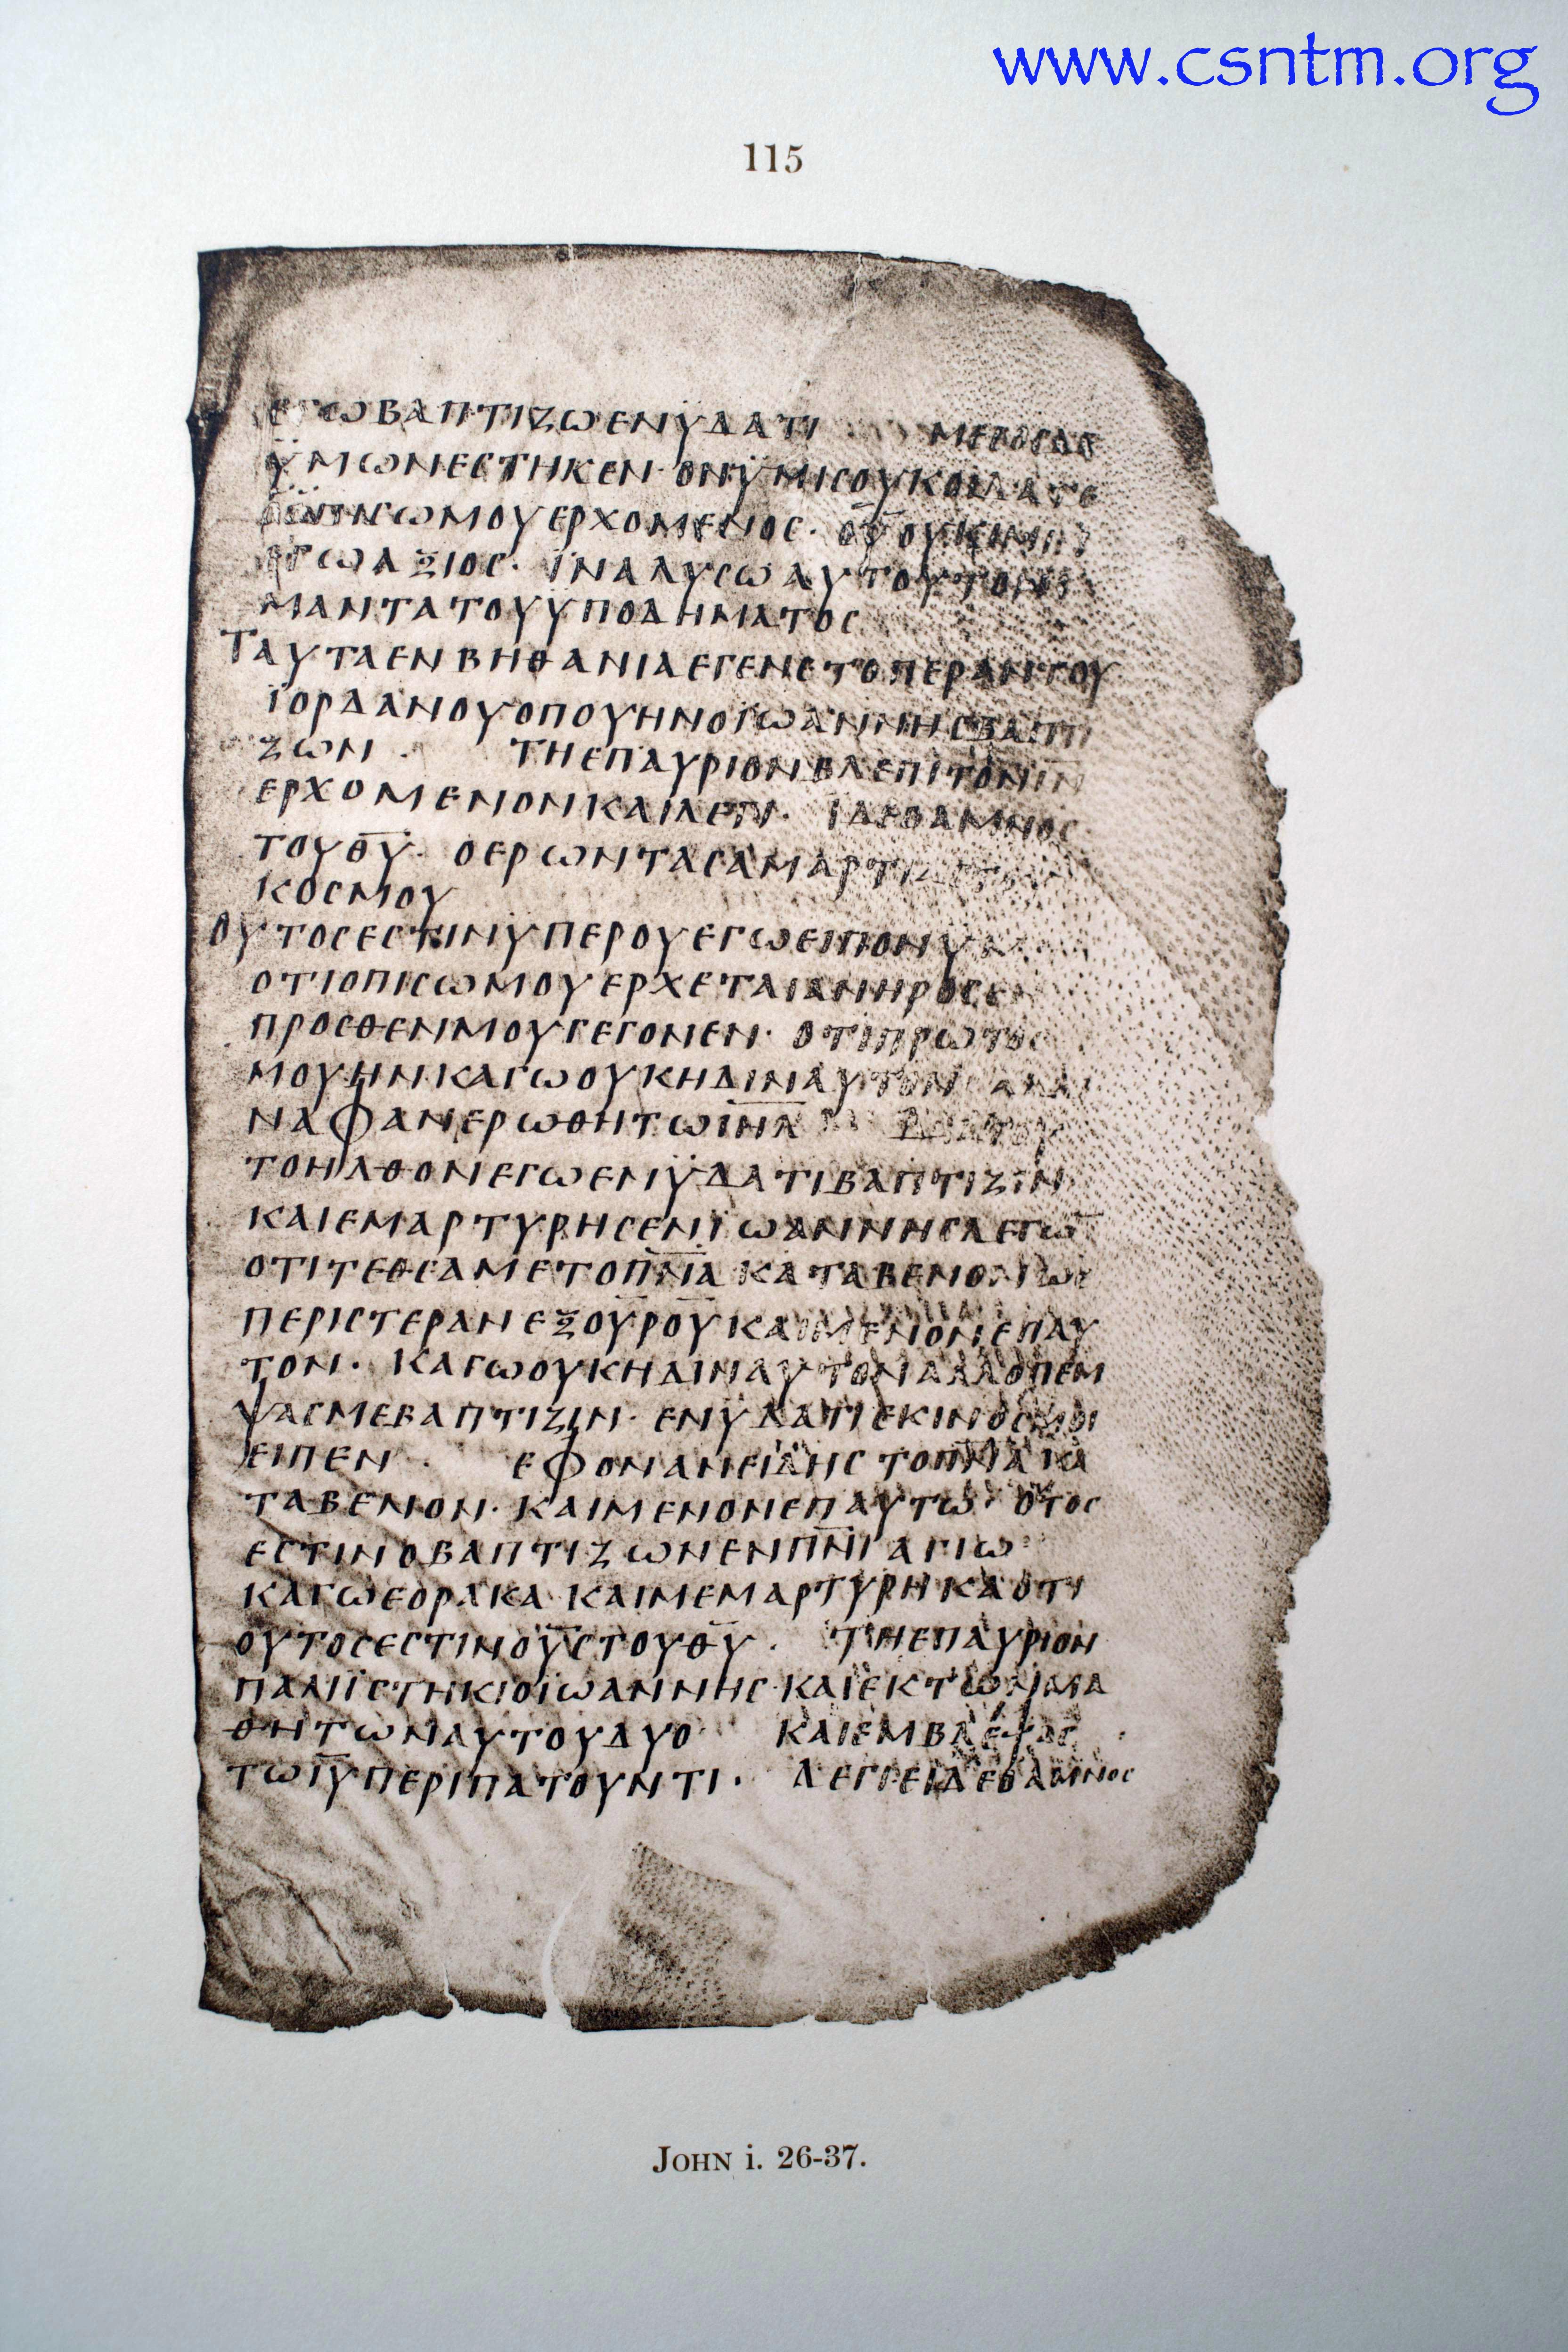 www.csntm.org
115
ΕΓΩΒΑΠΤΙΖΩΕΝΫΔΑΤΙ ΜΕΣΟΣΔΕ
ΫΜΩΝΕϹΤΗΚΕΝ· ΟΝΫΜΙϹΟΥΚΟΙΔΑΤΕ
ΟΠΙϹΩΜΟΥΕΡΧΟΜΕΝΟϹ· ΟΥΟΥΚΙΜΙ
ΕΓΩΑΞΙΟϹ· ΪΝΑΛΥϹΩΑΥΤΟΥΤΟΝΙ
ΜΑΝΤΑΤΟΥΫΠΟΔΗΜΑΤΟϹ
ΤΑΥΤΑΕΝΒΗΘΑΝΙΑΕΓΕΝΕΤΟΠΕΡΑΝΤΟΥ
ΪΟΡΔΑΝΟΥΟΠΟΥΗΝΟΪΩΑΝΝΗϹΒΑΠΤΙ
ΖΩΝ · ΤΗΕΠΑΥΡΙΟΝΒΛΕΠΙΤΟΝΙ̅Ν̅
ΕΡΧΟΜΕΝΟΝΚΑΙΛΕΓΙ· ΪΔΕΟΑΜΝΟϹ
ΤΟΥΘ̅Υ̅· ΟΕΡΩΝΤΑϹΑΜΑΡΤΙ
ΚΟϹΜΟΥ
ΟΥΤΟϹΕϹΤΙΝΥΠΕΡΟΥΕΓΩΕΙΠΟΝΥ
ΟΤΙΟΠΙϹΩΜΟΥΕΡΧΕΤΑΙΑΝΗΡΟϹΕΝ
ΠΡΟϹΘΕΝΜΟΥΓΕΓΟΝΕΝ· ΟΤΙΠΡΩΤΟϹ
ΜΟΥΗΝΚΑΓΩΟΥΚΗΔΙΝΑΥΤΟΝ ΑΛΛΙ
ΝΑΦΑΝΕΡΩΘΗΤΩΙ̅Η̅Λ̅ ΔΙΑΤΟΥ
ΤΟΗΛΘΟΝΕΓΩΕΝΫΔΑΤΙΒΑΠΤΙΖΙΝ
ΚΑΙΕΜΑΡΤΥΡΗϹΕΝΪΩΑΝΝΗϹΛΕΓΩ̅
ΟΤΙΤΕΘΕΑΜΕΤΟΠ̅Ν̅Α̅ΚΑΤΑΒΕΝΟΝΩϹ
ΠΕΡΙϹΤΕΡΑΝΕΞΟΥ̅ΡΟΥ̅ΚΑΙΜΕΝΟΝΕΠΑΥ
ΤΟΝ· ΚΑΓΩΟΥΚΗΔΙΝΑΥΤΟΝΑΛΛΟΠΕΜ
ΨΑϹΜΕΒΑΠΤΙΖΙΝ· ΕΝΫΔΑΤΙΕΚΙΝΟϹΜΟΙ
ΕΙΠΕΝ · ΕΦΟΝΑΝΕΙΔΗϹΤΟΠ̅Ν̅Α̅ΚΑ
ΤΑΒΕΝΟΝ· ΚΑΙΜΕΝΟΝΕΠΑΥΤΩ· ΟΤΟϹ
ΕϹΤΙΝΟΒΑΠΤΙΖΩΝΕΝΠ̅Ν̅Ι̅ΑΓΙΩ
ΚΑΓΩΕΟΡΑΚΑ·ΚΑΙΜΕΜΑΡΤΥΡΗΚΑΟΤΙ
ΟΥΤΟϹΕϹΤΙΝΟΥ̅Ϲ̅ΤΟΥΘ̅Υ̅· ΤΗΕΠΑΥΡΙΟΝ
ΠΑΛΙΪϹΤΗΚΙΟΪΩΑΝΝΗϹ·ΚΑΙΕΚΤΩΝΜΑ
ΘΗΤΩΝΑΥΤΟΥΔΥΟ· ΚΑΙΕΜΒΛΕΨΑϹ
ΤΩΙ̅Υ̅ΠΕΡΙΠΑΤΟΥΝΤΙ· ΛΕΓΕΙΔΕΟΑΜΝΟϹ
JOHN i. 26-37.